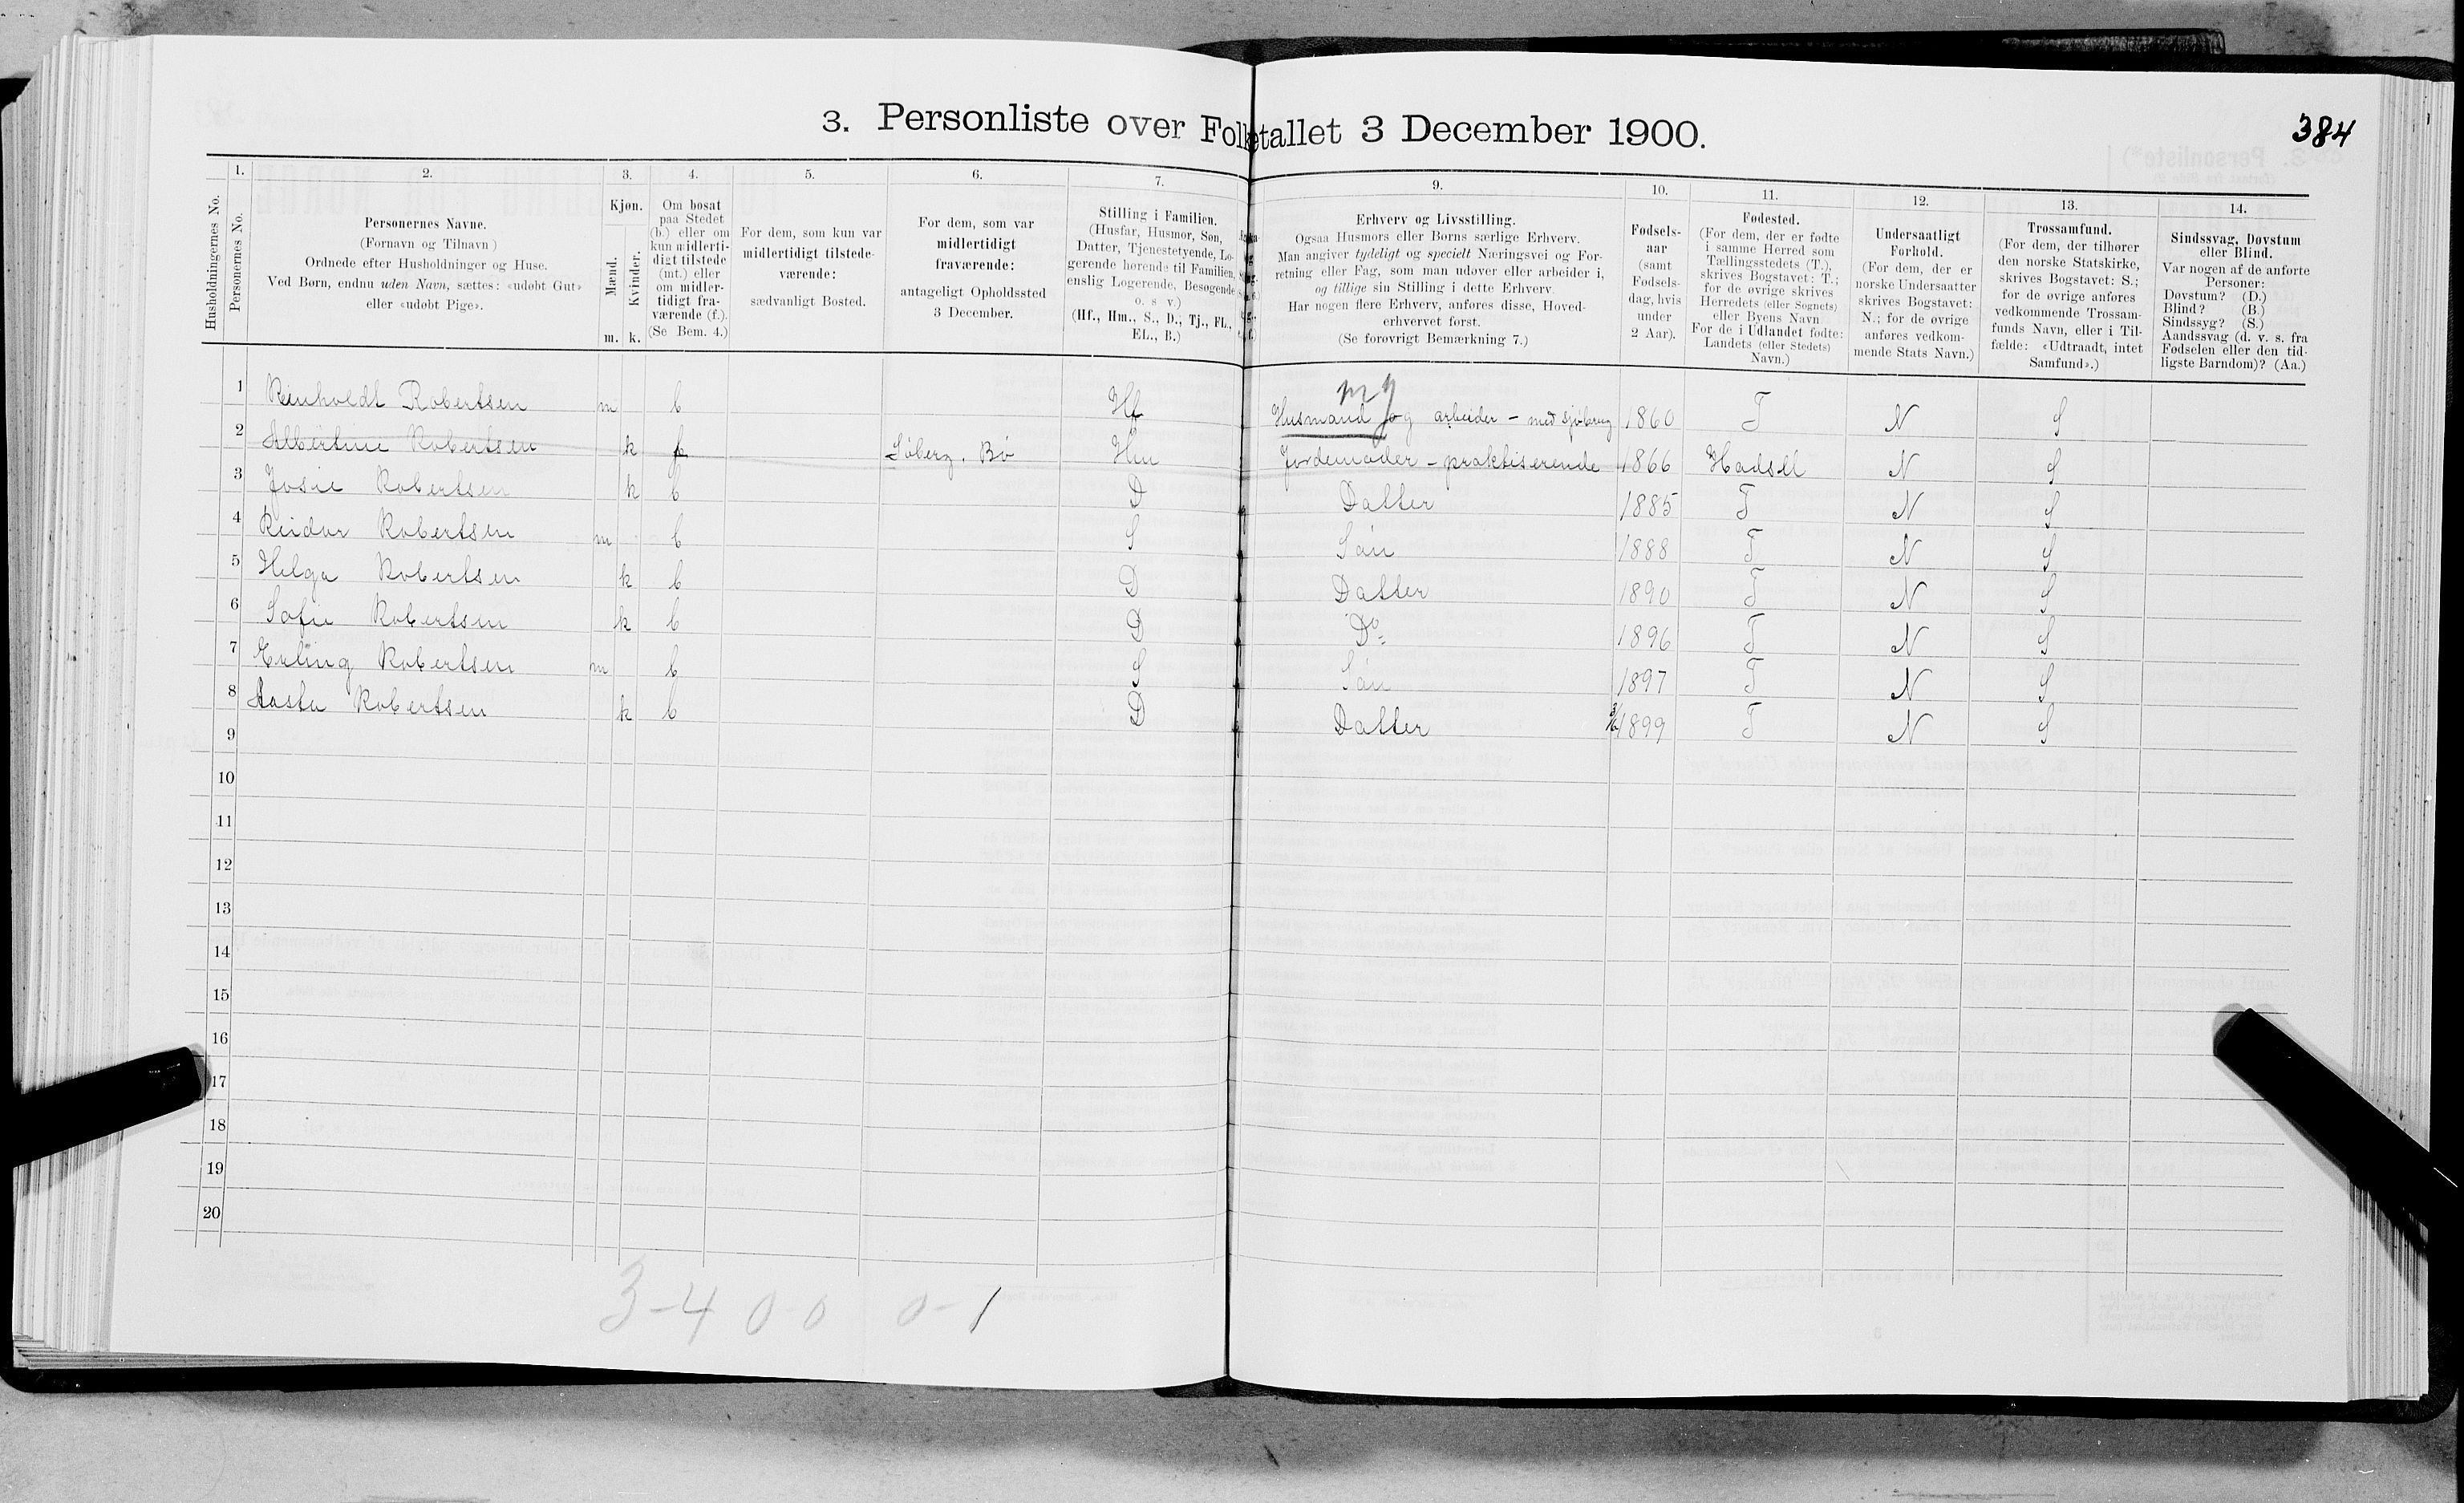 384
3. Personliste over Folketallet 3 December 1900.
Husholdningernes No.
1.
Personernes No.
2.
Personernes Navne.
(Fornavn og Tilnavn)
Ordnede efter Husholdninger og Huse.
Ved Børn, endnu uden Navn, sættes: «udøbt Gut»
eller «udøbt Pige».
3.
Kjøn.
Mænd.
Kvinder.
m. k.
4.
Om bosat
paa Stedet
(b.) eller om
kun midlerti-
digt tilstede
(mt.) eller
om midler-
tidigt fra-
værende (f.).
(Se Bem. 4.)
5.
For dem, som kun var
midlertidigt tilstede-
værende:
sædvanligt Bosted.
6.
For dem, som var
midlertidigt
fraværende:
antageligt Opholdssted
3 December.
7.
Stilling i Familien.
(Husfar, Husmor, Søn,
Datter, Tjenestetyende, Lo-
gerende hørende til Familien,
enslig Logerende, Besøgende
o. s v.)
(Hf., Hm., S., D., Tj., FL.,
EL., B.)
9.
Erhverv og Livsstilling.
Ogsaa Husmors eller Børns særlige Erhverv.
Man angiver tydeligt og specielt Næringsvei og For-
retning eller Fag, som man udøver eller arbeider i,
og tillige sin Stilling i dette Erhverv.
Har nogen flere Erhverv, anføres disse, Hoved-
erhvervet først.
(Se forøvrigt Bemærkning 7.)
10.
Fødsels-
aar
(samt
Fødsels-
dag, hvis
under
2 Aar).
11.
Fødested.
(For dem, der er fødte
i samme Herred som
Tællingsstedets (T.),
skrives Bogstavet: T.;
for de øvrige skrives
Herredets (eller Sognets)
eller Byens Navn
For de i Udlandet fødte:
Landets (eller Stedets)
Navn.)
12.
Undersaatligt
Forhold.
(For dem, der er
norske Undersaatter
skrives Bogstavet:
N.; for de øvrige
anføres vedkom-
mende Stats Navn.)
13.
Trossamfund.
(For dem, der tilhører
den norske Statskirke,
skrives Bogstavet: S.;
for de øvrige anføres
vedkommende Trossam-
funds Navn, eller i Til-
fælde: «Udtraadt, intet
Samfund».)
14.
Sindssvag, Døvstum
eller Blind.
Var nogen af de anførte
Personer:
Døvstum? (D.)
Blind? (B.)
Sindssyg? (S.)
Aandssvag (d. v. s. fra
Fødselen eller den tid-
ligste Barndom)? (Aa.)
1 Reinholdt Robertsen m b Hf Husmand og arbeider - med sjøbrug 1860 T N S
2 Albertine Robertsen k f Søberg, Bø Hm Jordemoder - praktiserende 1866 Hadsel N S
3 Josie Robertsen k b D Datter 1885 T N S
4 Reidar Robertsen m b S Søn 1888 T N S
5 Helga Robertsen k b D Datter 1890 T N S
6 Sofie Robertsen k b D Do 1896 T N S
7 Erling Robertsen m b S Søn 1897 T N S
8 Aasta Robertsen k b D Datter 1899 T N S
9
10
11
12
13
14
15
16
17
18
19
20
3-4 0-0 0-1